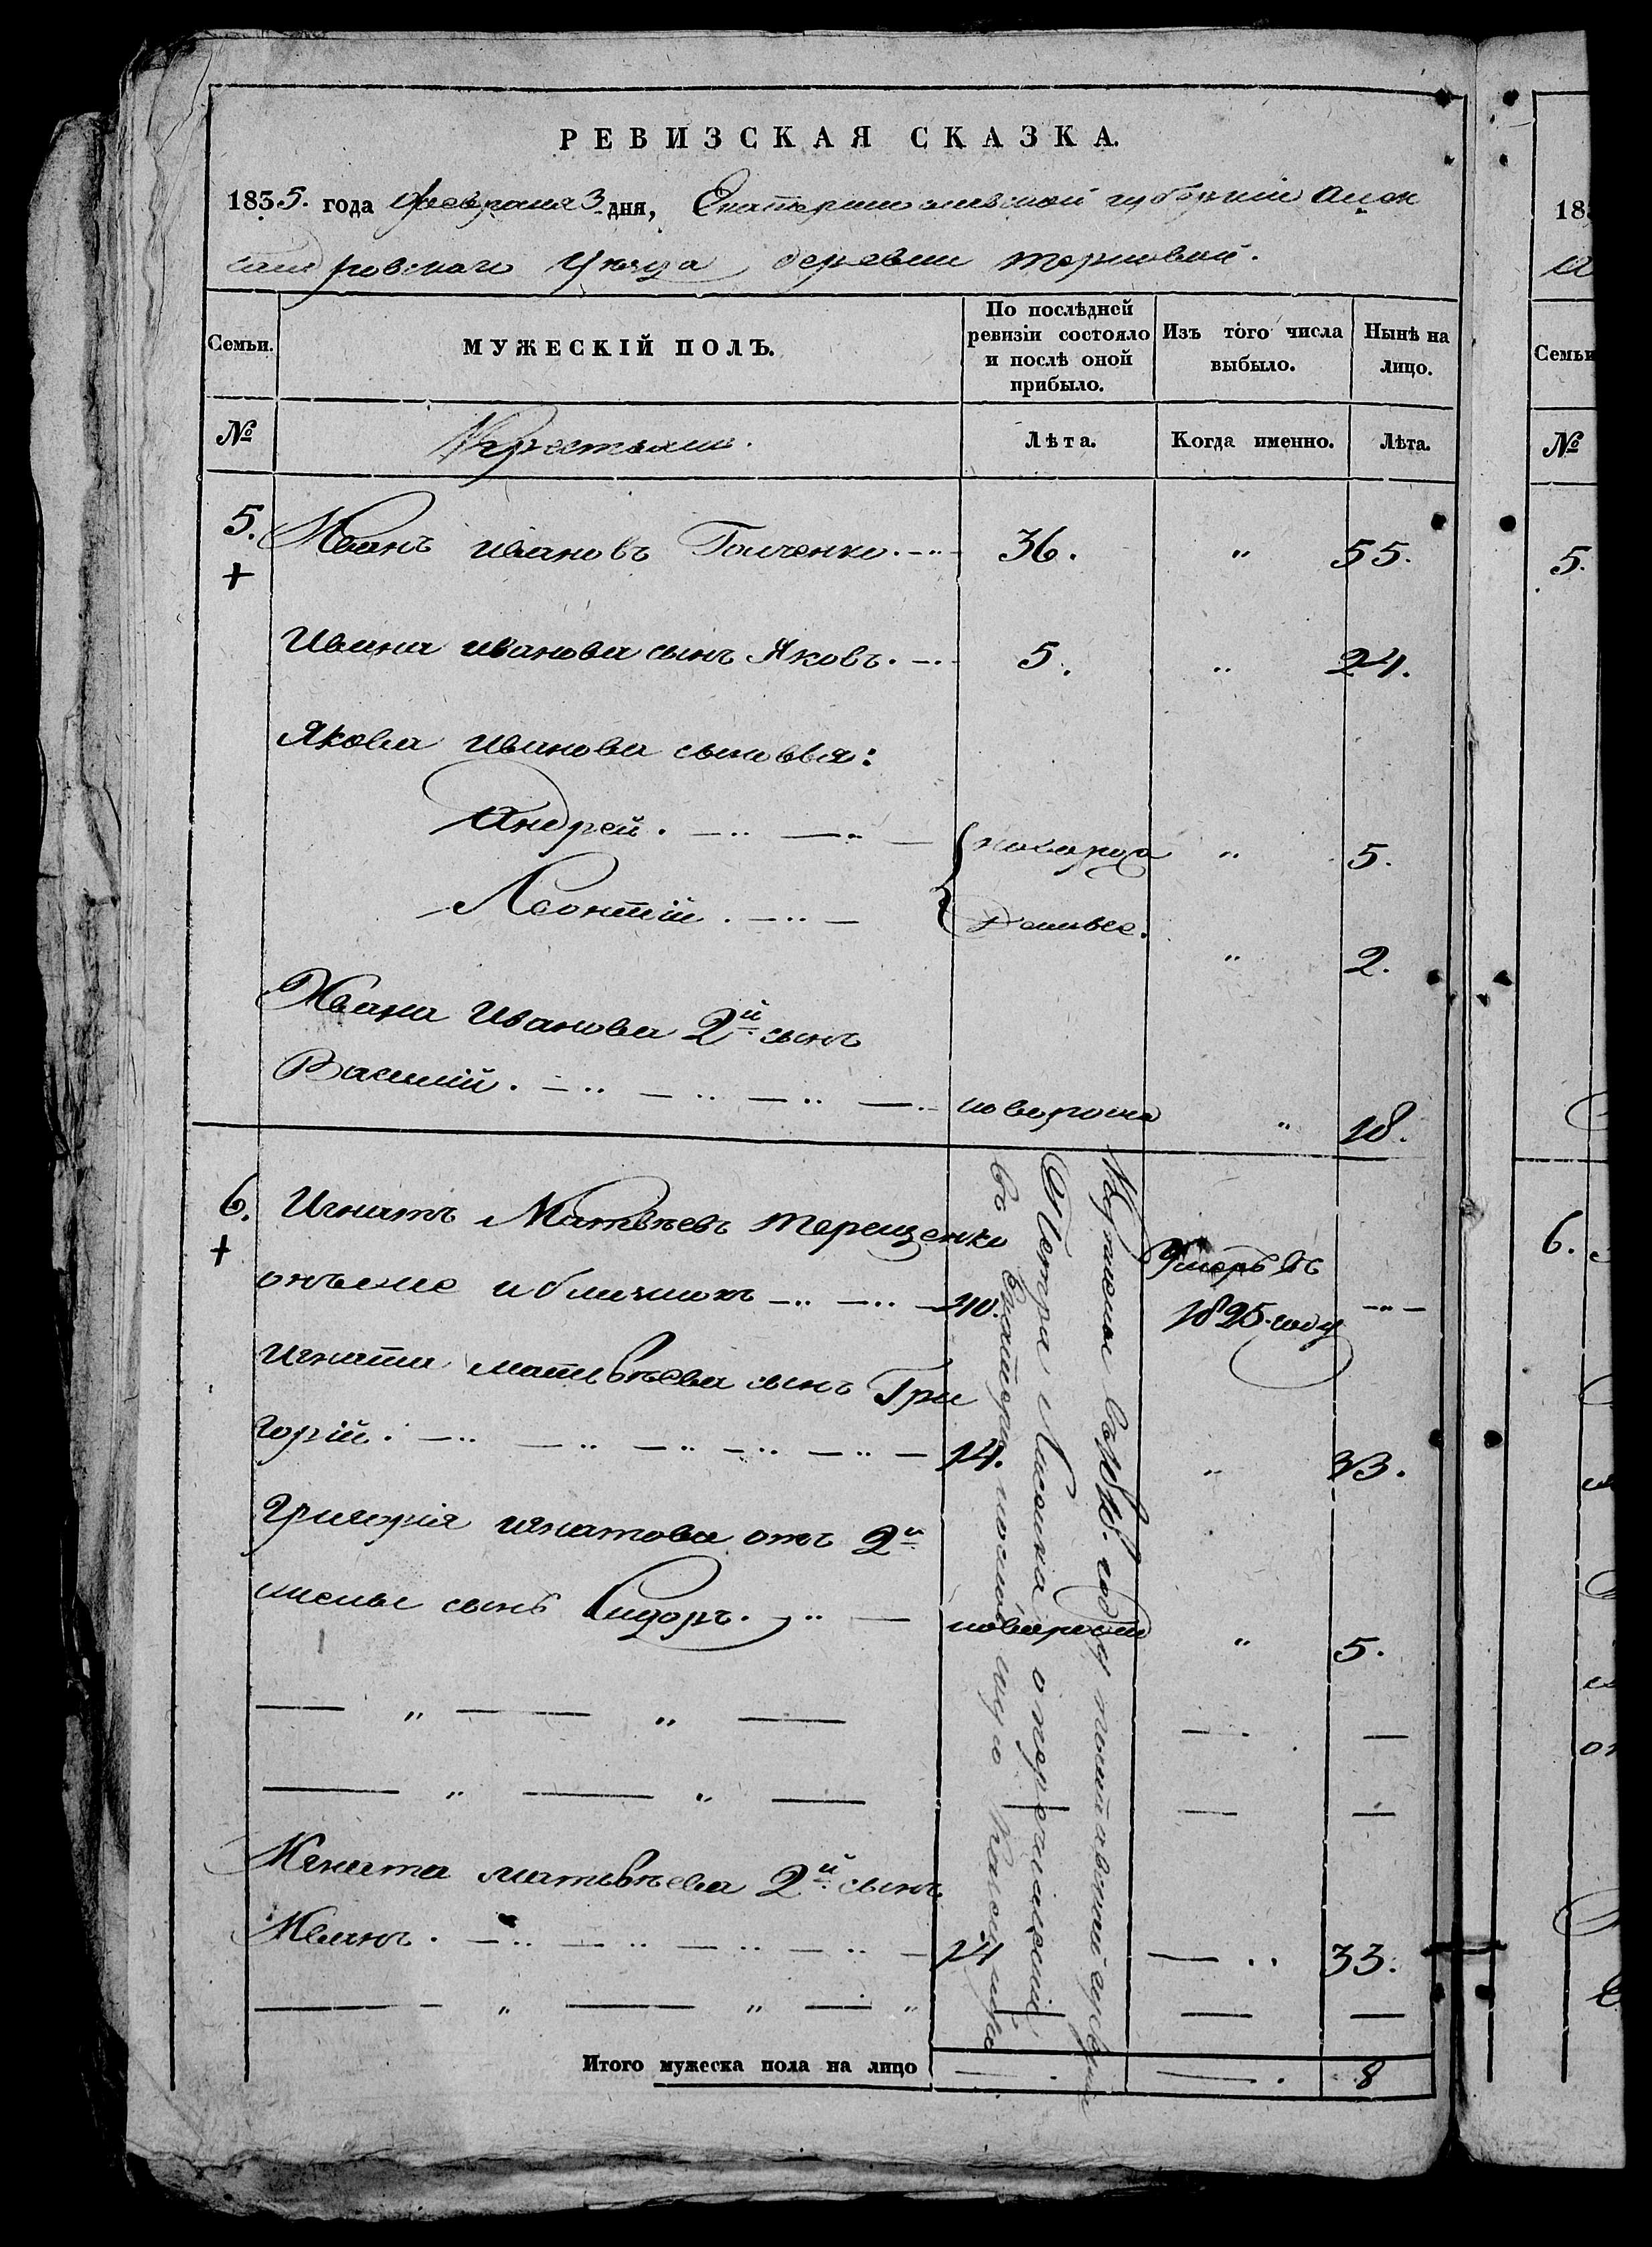 РЕВИЗСКАЯ СКАЗКА.
1835. года февраля 3 дня, Екатеринославской губернии Алек
сандровскаго Уѣзда деревни терновой.
Семьи.
МУЖЕСКІЙ ПОЛЪ.
По послѣдней ревизіи состояло и послѣ оной прибыло.
Изъ того числа выбыло.
Нынѣ на лицо.
№
Крестьяне.
Лѣта.
Когда именно.
Лѣта.
5. Иванъ ивановъ 36. " 55.
+
Ивана иванова сынъ Яковъ. 5. " 24.
Якова иванова сыновья:
Андрей. новорож " 5.
Леонтій. денные. " 2.
Ивана Иванова 2й сынъ
Василій. новорож " 18.
6. Игнатъ Матвѣевъ терещенко Умеръ въ
+
40. 1825. году
игната матвѣева сынъ Гри
горій. 14. " 33.
Григорія игнатова отъ 2й
жены сынъ Сидоръ. новорож " 5.
Игната матвѣева 2й сынъ
Иванъ. 14 33.
Купленная въ 1818. году
Петра о перечисленій
въ Екатери
Итого мужеска пола на лицо 8
18
Семьи
№
5.
6.